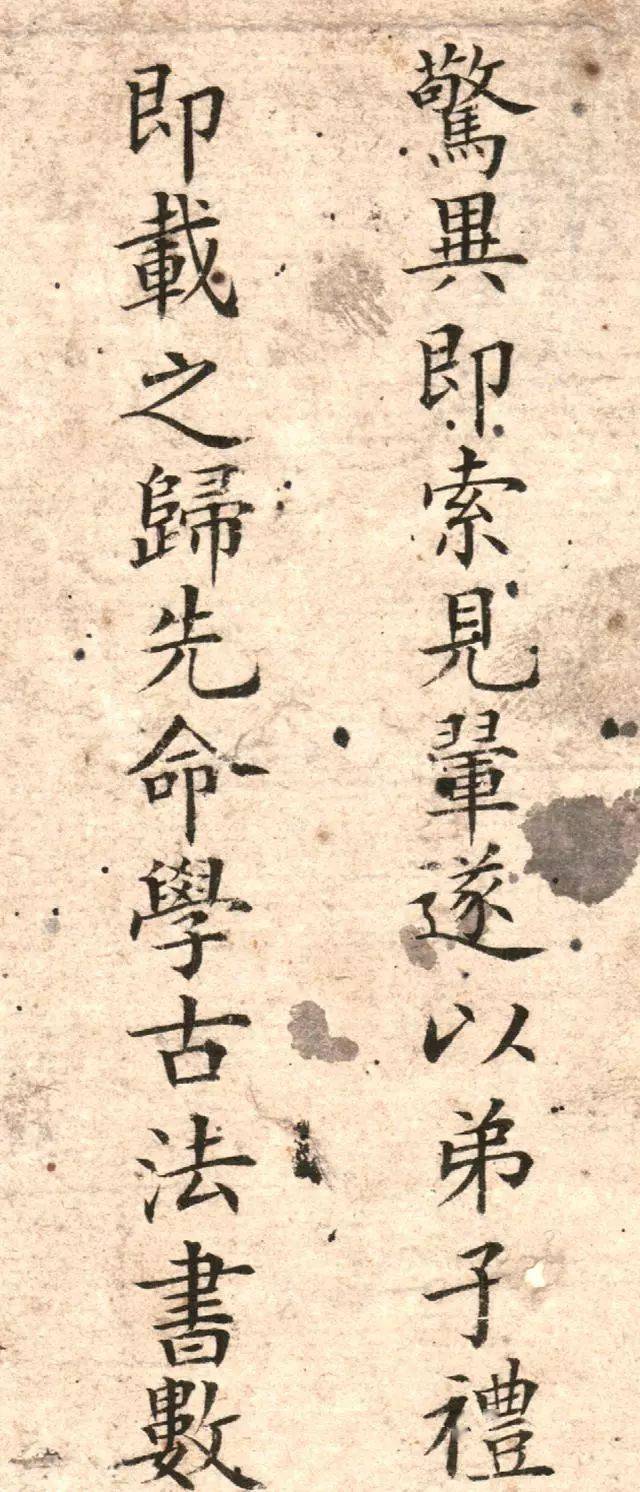 驚異即索見翬遂以弟子禮
即載之歸先命學古法書數